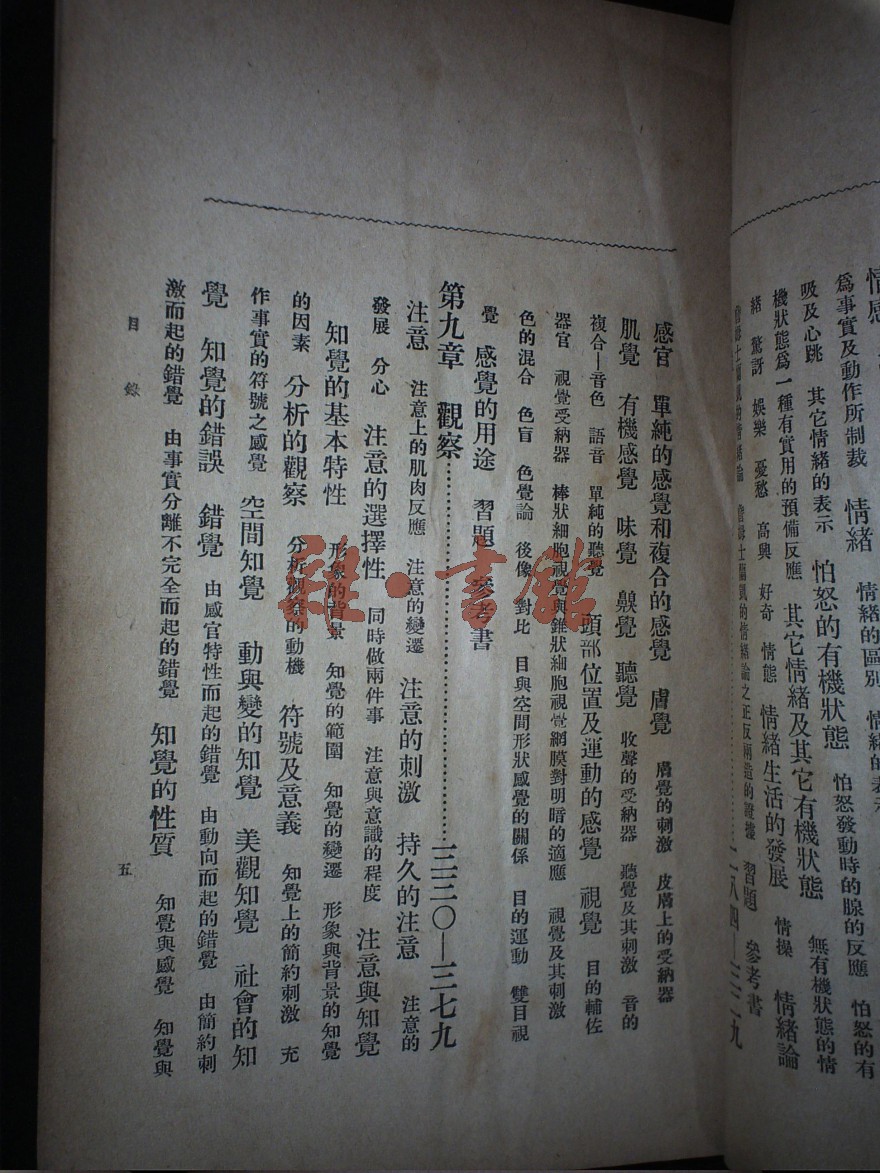 爲事實及動作所制裁　情緒　情緒的區別　情緒的表示
吸及心跳　其它情緒的表示　怕怒的有機狀態　怕怒發動時的腺的反應　怕怒的有
機狀態爲一種有實用的預備反應　其它情緒及其它有機狀態　無有機狀態的情
緒　驚訝　娛樂　憂愁　高興　好奇　情態　情緒生活的發展　情操　情緒論
詹姆士蘭凱的情緒論　詹姆士蘭凱的情緒論之正反兩造的證據　習題　參考書……二八四—三二九
感官　單純的感覺和複合的感覺　膚覺　膚覺的刺激　皮膚上的受納器
肌覺　有機感覺　味覺　嗅覺　聽覺　收聲的受納器　聽覺及其刺激　音的
複合—音色　語音　單純的聽覺　頭部位置及運動的感覺　視覺　目的輔佐
器官　視覺受納器　棒狀細胞視覺與錐狀細胞視覺　網膜對明暗的適應　視覺及其刺激
色的混合　色盲　色覺論　後像　對比　目與空間形狀感覺的關係　目的運動　雙目視
覺　感覺的用途　習題　參考書
第九章　觀察……三三〇—三七九
注意　注意上的肌肉反應　注意的變遷　注意的刺激　持久的注意　注意的
發展　分心　注意的選擇性　同時做兩件事　注意與意識的程度　注意與知覺
知覺的基本特性　形象的背景　知覺的範圍　知覺的變遷　形象與背景的知覺
的因素　分析的觀察　分析觀察的動機　符號及意義　知覺上的簡約刺激　充
作事實的符號之感覺　空間知覺　動與變的知覺　美觀知覺　社會的知
覺　知覺的錯誤　錯覺　由感官特性而起的錯覺　由動向而起的錯覺　由簡約刺
激而起的錯覺　由事實分離不完全而起的錯覺　知覺的性質　知覺與感覺　知覺與
目錄　五
雜·書館